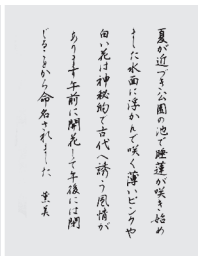 夏が近づき公園の池で睡蓮が咲き始め
ました水面に浮かんで咲く薄いピンクや
白い花は神秘的で古代へ誘う風情が
あります午前に開花して午後には閉
じることから命名されました 葉美